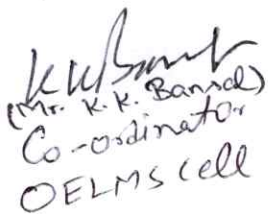 KKBansal
(Mr. K. K. Bansal)
Co-ordinator
OELMS Cell